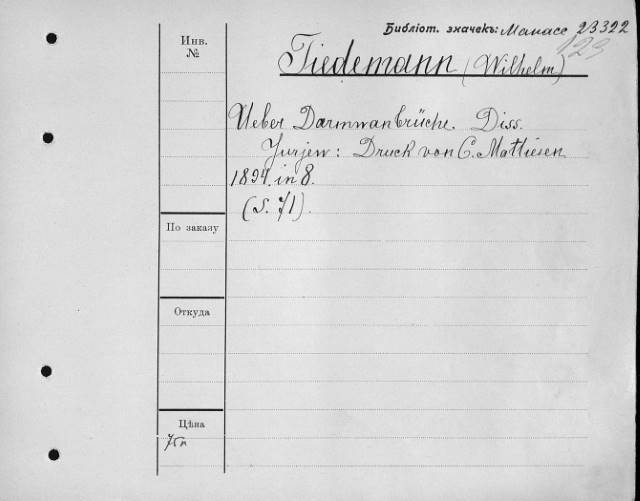 Библіот. значекъ: Манасс 23322
123
Инв.
№
Tiedemann (Wilhelm)
Ueber Darmwanbrüche. Diss.
Jurjew: Druck von C. Mattiesen
1894. in 8.
(S. 71).
По заказу
Откуда
Цѣна
75к